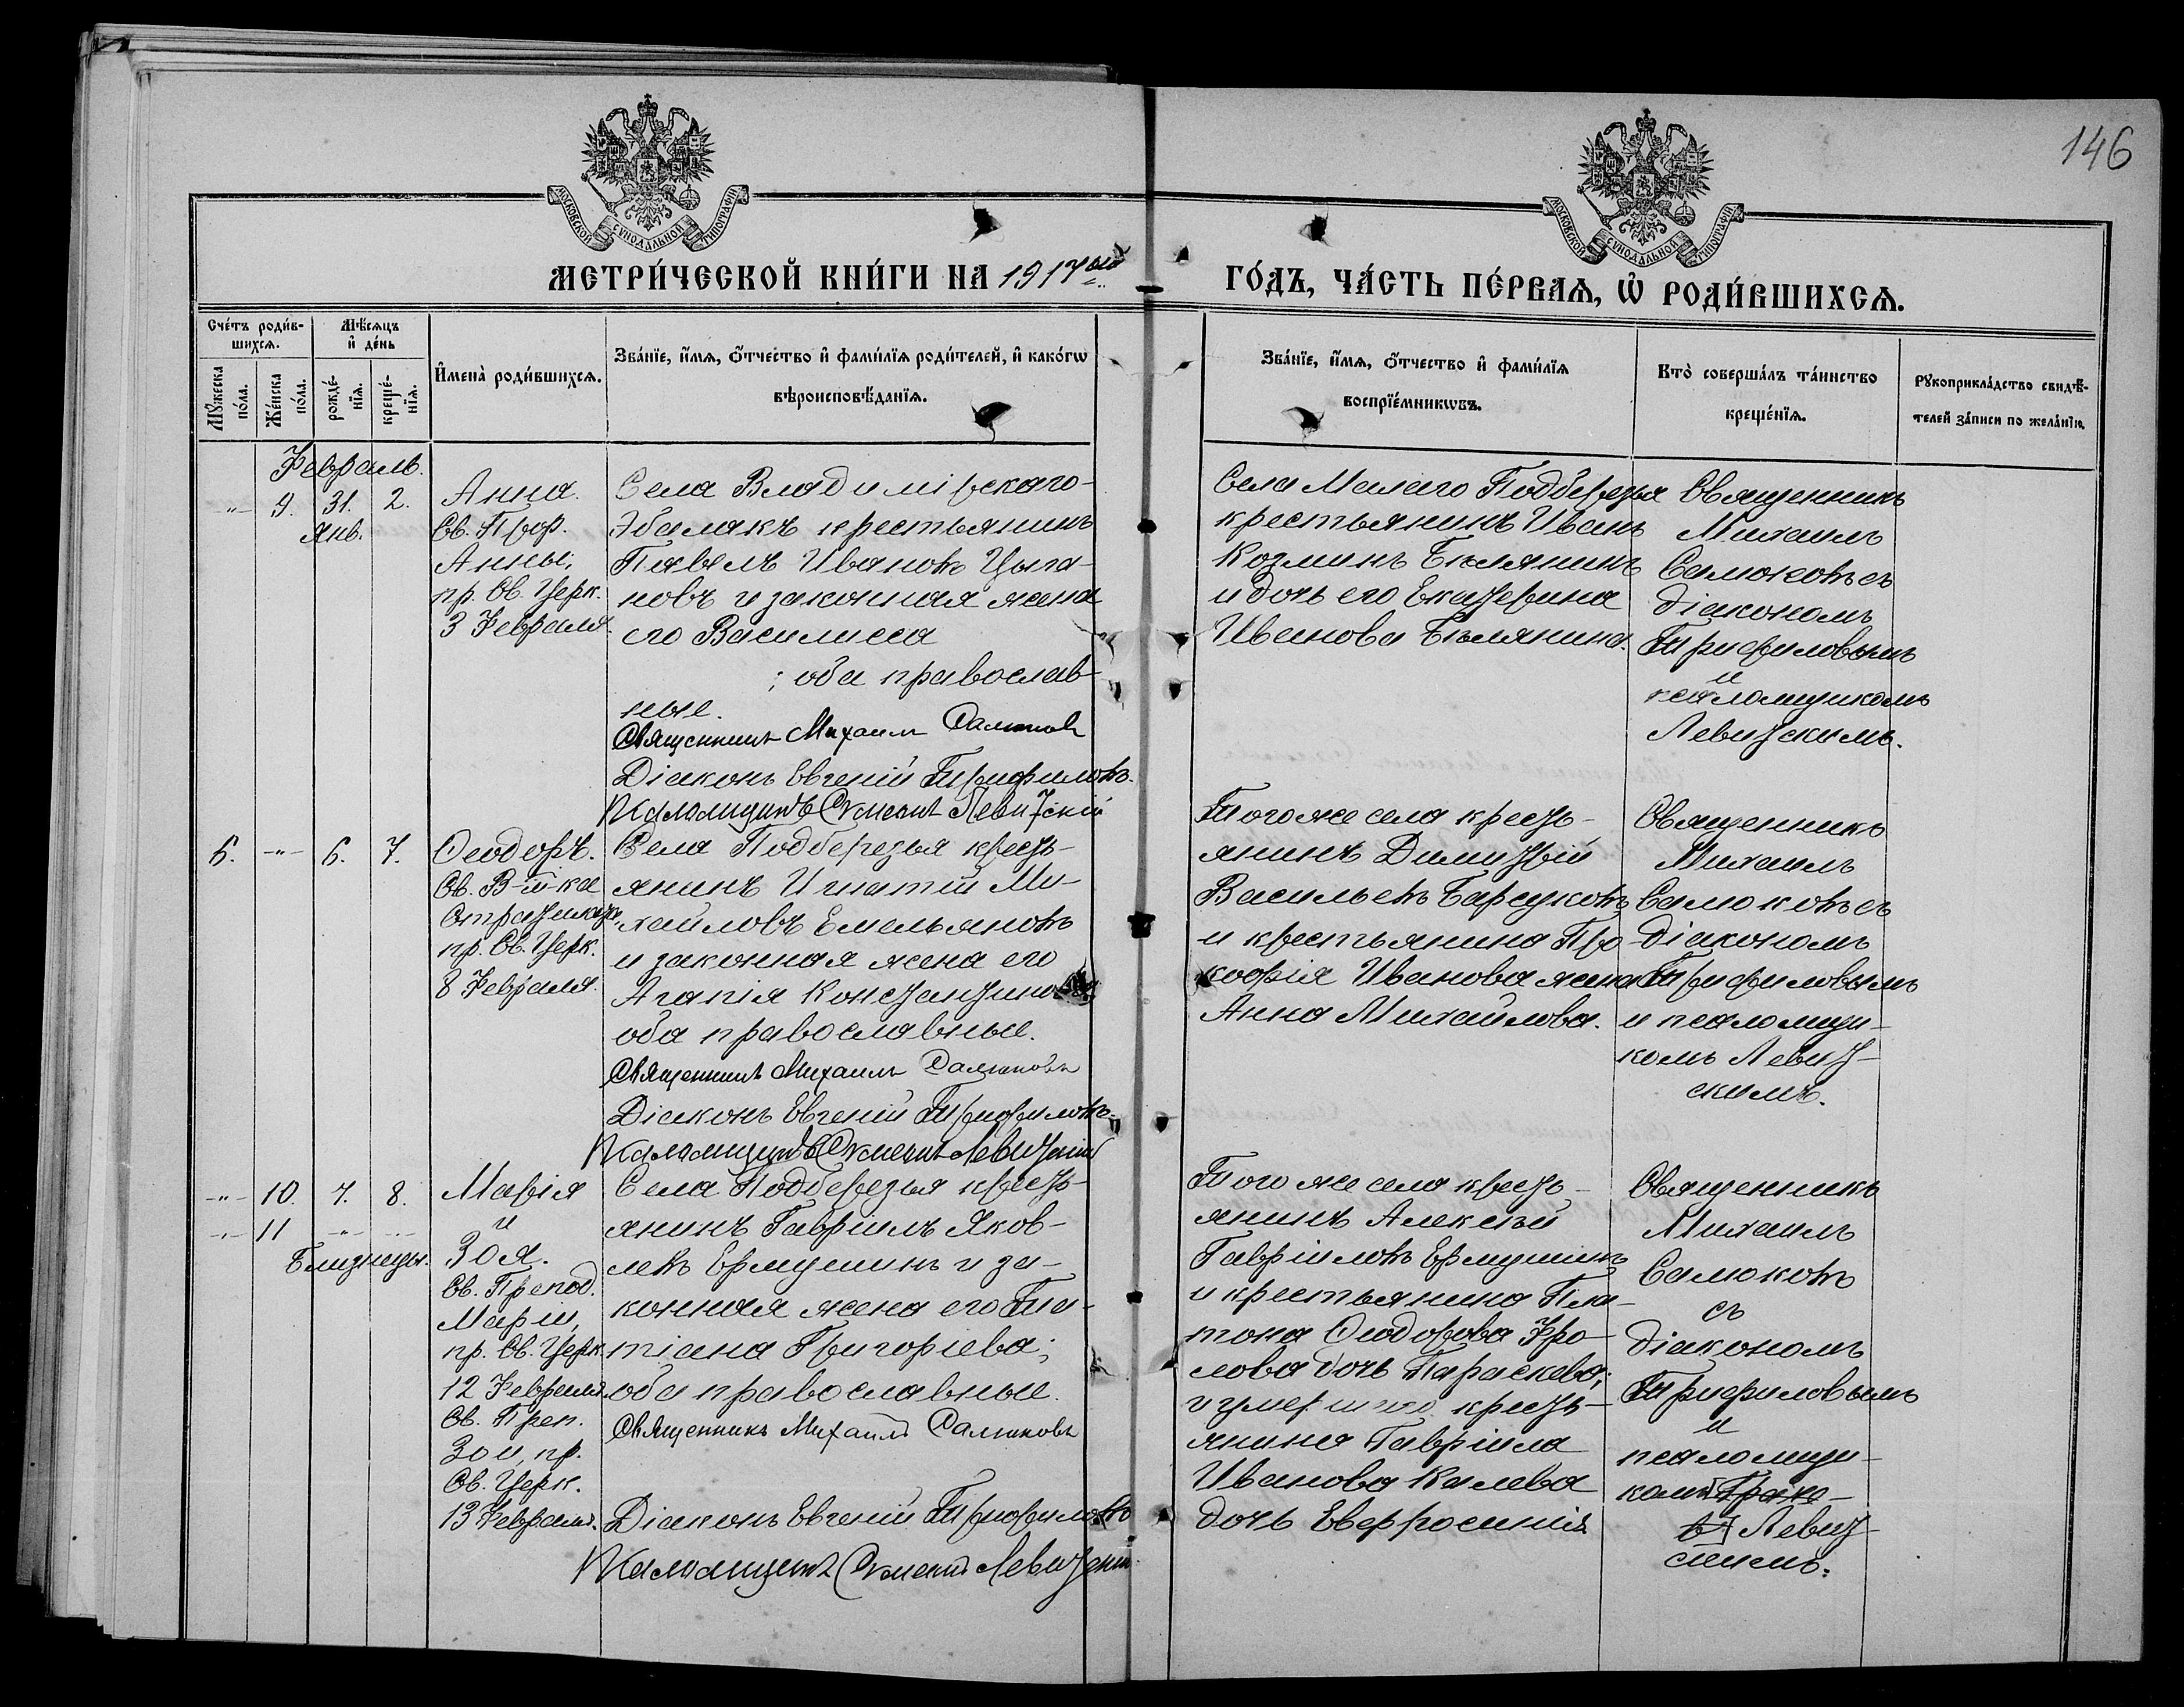 146
МОСКОВСКОЙ СѴНОДАЛЬНОЙ ТИПОГРАФІИ
МОСКОВСКОЙ СѴНОДАЛЬНОЙ ТИПОГРАФІИ
МЕТРИ́ЧЕСКОЙ КНИ́ГИ НА 1917ый
ГО́ДЪ, ЧА́СТЬ ПЕ́РВАѦ, Ѡ҆ РОДИ́ВШИХСѦ.
Сче́тъ роди́в-
шихсѧ.
Мѣ́сѧцъ
и҆ де́нь
Мꙋ́жеска
по́ла.
Же́нска
по́ла.
рожде́-
нїѧ.
креще́-
нїѧ.
И҆мена̀ роди́вшихсѧ.
Зва́нїе, и҆́мѧ, ѻ҆́тчество и҆ фами́лїѧ роди́телей, и҆ како́гѡ
вѣроисповѣ́данїѧ.
Зва́нїе, и҆́мѧ, ѻ҆́тчество и҆ фами́лїѧ
воспрїе́мникѡвъ.
Кто̀ соверша́лъ та́инство
креще́нїѧ.
Рꙋкоприкла́дство свидѣ́-
телей за́писи по жела́нїю.
Февраль.
-"- 9. 31. 2.
Янв.
Анна.
Св. Прор.
Анны;
пр. Св. Церк.
3 Февраля.
Села Владимірскаго-
Эбалакъ крестьянинъ
Павелъ Ивановъ Цыга-
новъ и законная жена
его Василисса
; оба православ-
ные.
Священникъ Михаилъ Самоковъ
Діаконъ Евгеній Трифиловъ.
Псаломщикъ Левитскій
Села Малаго Подберезья
крестьянинъ Иванъ
Козминъ Бѣлянинъ
и дочь его Екатерина
Иванова Бѣлянина.
Священникъ
Михаилъ
Самоковъ съ
діакономъ
Трифиловымъ
и
псаломщикомъ
Левитскимъ.
6. -"- 6. 7.
Ѳеодоръ.
Св. В-м-ка
Стратилата,
пр. Св. Церк.
8 Февраля.
Села Подберезья кресть-
янинъ Игнатій Ми-
хайловъ Емельяновъ
и законная жена его
Агапія Константинова
оба православные.
Священникъ Михаилъ Самоковъ
Діаконъ Евгеній Трифиловъ.
Псаломщикъ Левитскій
Того же села кресть-
янинъ Димитрій
Васильевъ Барсуковъ
и крестьянина Про-
кофія Иванова жена
Анна Михайлова.
Священникъ
Михаилъ
Самоковъ съ
діакономъ
Трифиловымъ
и псаломщи-
комъ Левит-
скимъ.
-"- 10. 7. 8.
-"- 11 -"- -"-
Близнецы.
Марія
и
Зоя.
Св. Препод.
Маріи,
пр. Св. Церк.
12 Февраля.
Св. Преп.
Зои, пр.
Св. Церк.
13 Февраля.
Села Подберезья кресть-
янинъ Гавріилъ Яков-
левъ Ермушинъ и за-
конная жена его Та-
тіана Григорьева;
оба православные.
Священникъ Михаилъ Самоковъ
Діаконъ Евгеній Трифиловъ
Псаломщикъ Левитскій.
Того же села кресть-
янинъ Алексѣй
Гавріиловъ Ермушинъ
и крестьянина Пла-
тона Ѳеодорова Фро-
лова дочь Параскева;
и умершаго кресть-
янина Гавріила
Иванова Калева
дочь Евфросинія
Священникъ
Михаилъ
Самоковъ
съ
діакономъ
Трифиловымъ
и
псаломщи-
комъ
Левит-
скимъ.